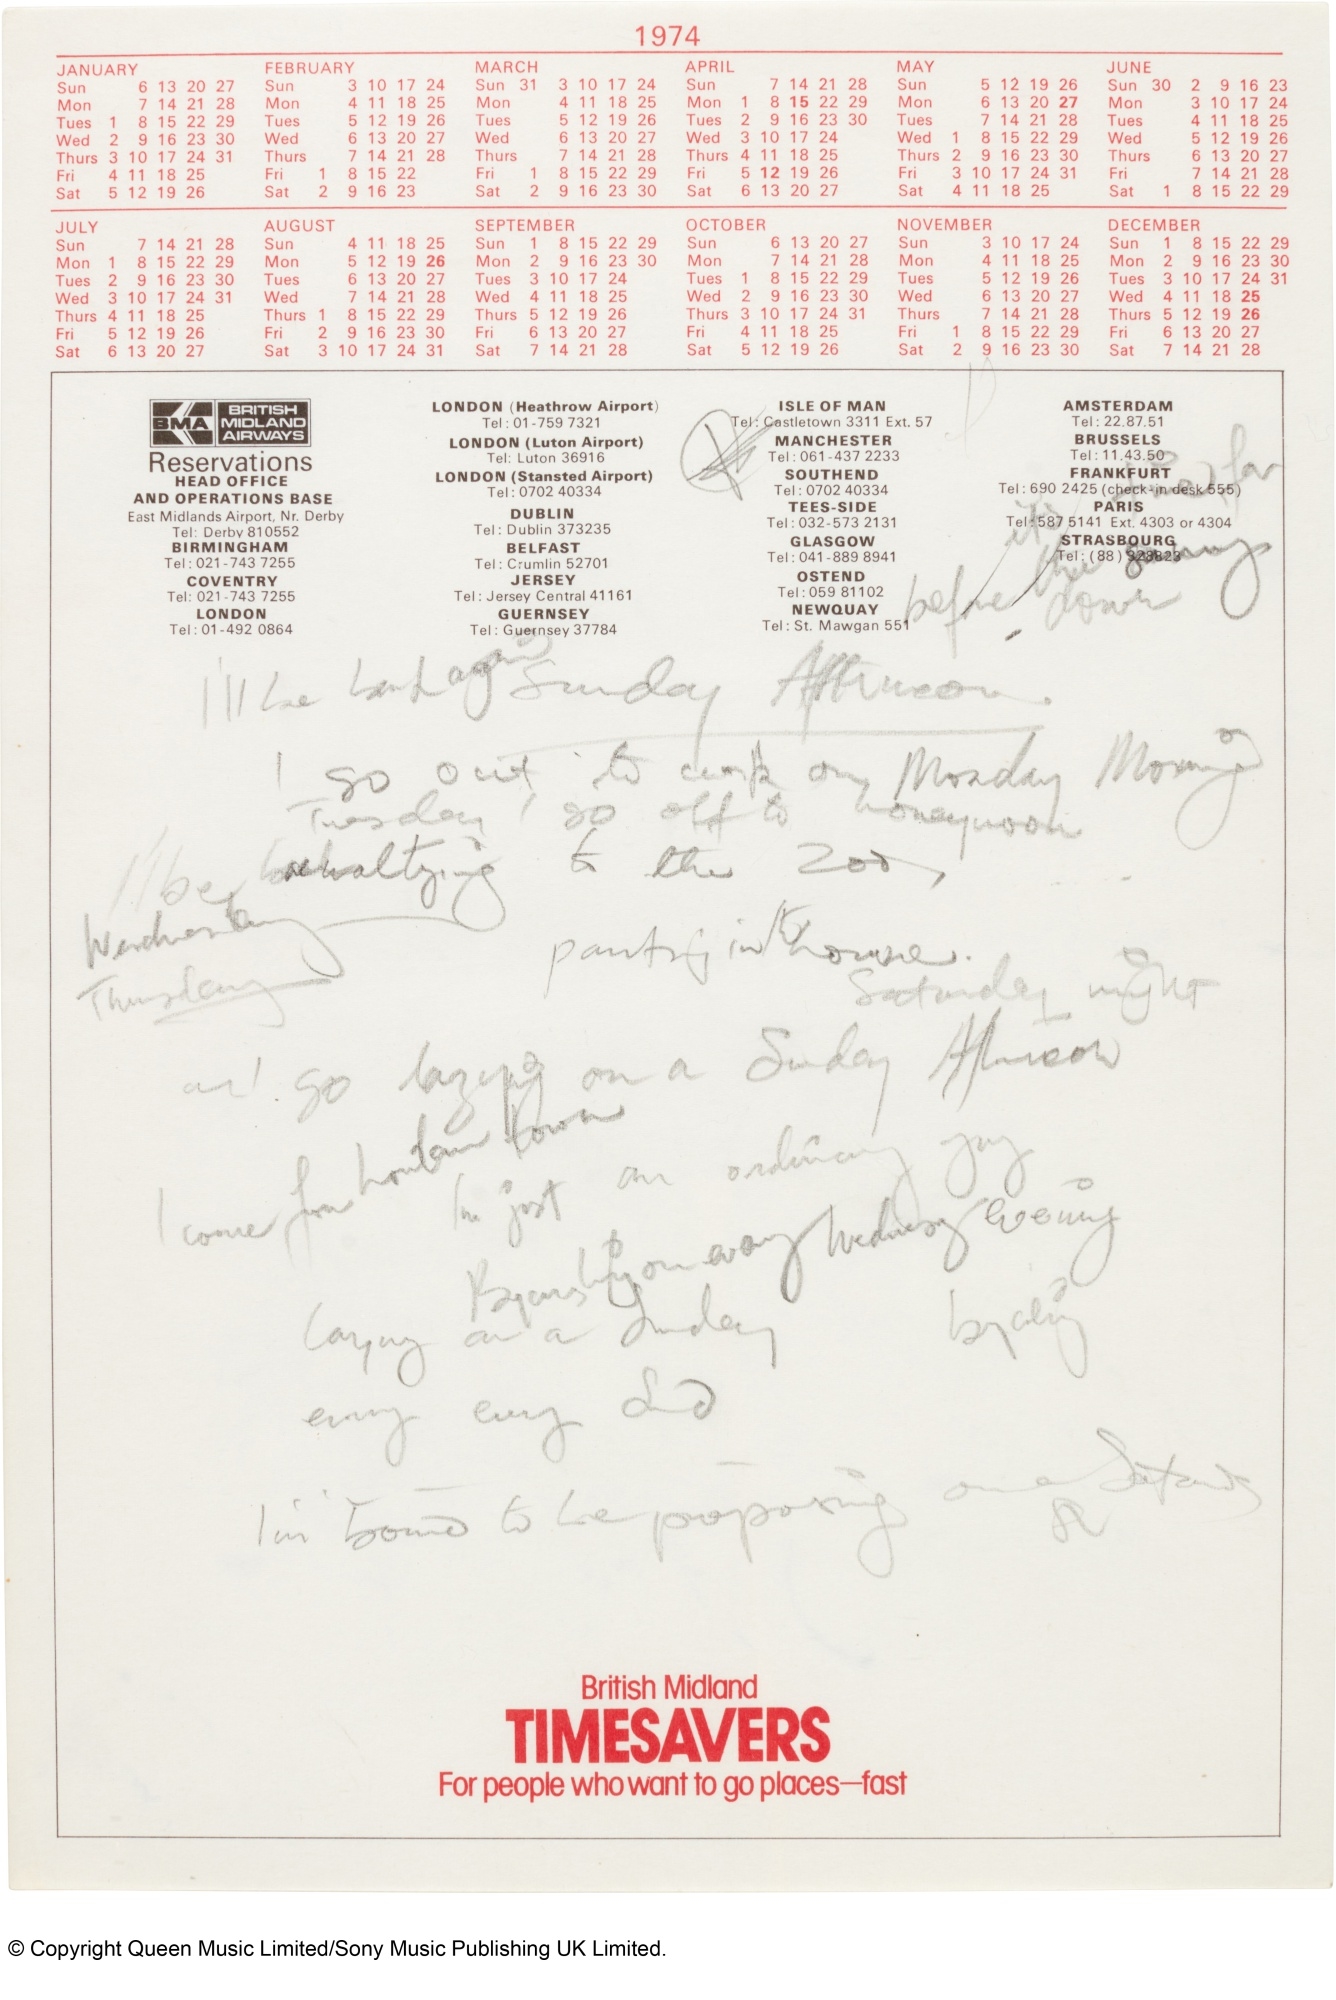 1974
JANUARY
Sun 6 13 20 27
Mon 7 14 21 28
Tues 1 8 15 22 29
Wed 2 9 16 23 30
Thurs 3 10 17 24 31
Fri 4 11 18 25
Sat 5 12 19 26
FEBRUARY
Sun 3 10 17 24
Mon 4 11 18 25
Tues 5 12 19 26
Wed 6 13 20 27
Thurs 7 14 21 28
Fri 1 8 15 22
Sat 2 9 16 23
MARCH
Sun 31 3 10 17 24
Mon 4 11 18 25
Tues 5 12 19 26
Wed 6 13 20 27
Thurs 7 14 21 28
Fri 1 8 15 22 29
Sat 2 9 16 23 30
APRIL
Sun 7 14 21 28
Mon 1 8 15 22 29
Tues 2 9 16 23 30
Wed 3 10 17 24
Thurs 4 11 18 25
Fri 5 12 19 26
Sat 6 13 20 27
MAY
Sun 5 12 19 26
Mon 6 13 20 27
Tues 7 14 21 28
Wed 1 8 15 22 29
Thurs 2 9 16 23 30
Fri 3 10 17 24 31
Sat 4 11 18 25
JUNE
Sun 30 2 9 16 23
Mon 3 10 17 24
Tues 4 11 18 25
Wed 5 12 19 26
Thurs 6 13 20 27
Fri 7 14 21 28
Sat 1 8 15 22 29
JULY
Sun 7 14 21 28
Mon 1 8 15 22 29
Tues 2 9 16 23 30
Wed 3 10 17 24 31
Thurs 4 11 18 25
Fri 5 12 19 26
Sat 6 13 20 27
AUGUST
Sun 4 11 18 25
Mon 5 12 19 26
Tues 6 13 20 27
Wed 7 14 21 28
Thurs 1 8 15 22 29
Fri 2 9 16 23 30
Sat 3 10 17 24 31
SEPTEMBER
Sun 1 8 15 22 29
Mon 2 9 16 23 30
Tues 3 10 17 24
Wed 4 11 18 25
Thurs 5 12 19 26
Fri 6 13 20 27
Sat 7 14 21 28
OCTOBER
Sun 6 13 20 27
Mon 7 14 21 28
Tues 1 8 15 22 29
Wed 2 9 16 23 30
Thurs 3 10 17 24 31
Fri 4 11 18 25
Sat 5 12 19 26
NOVEMBER
Sun 3 10 17 24
Mon 4 11 18 25
Tues 5 12 19 26
Wed 6 13 20 27
Thurs 7 14 21 28
Fri 1 8 15 22 29
Sat 2 9 16 23 30
DECEMBER
Sun 1 8 15 22 29
Mon 2 9 16 23 30
Tues 3 10 17 24 31
Wed 4 11 18 25
Thurs 5 12 19 26
Fri 6 13 20 27
Sat 7 14 21 28
BMA BRITISH MIDLAND AIRWAYS
Reservations
HEAD OFFICE
AND OPERATIONS BASE
East Midlands Airport, Nr. Derby
Tel: Derby 810552
BIRMINGHAM
Tel: 021-743 7255
COVENTRY
Tel: 021-743 7255
LONDON
Tel: 01-492 0864
LONDON (Heathrow Airport)
Tel: 01-759 7321
LONDON (Luton Airport)
Tel: Luton 36916
LONDON (Stansted Airport)
Tel: 0702 40334
DUBLIN
Tel: Dublin 373235
BELFAST
Tel: Crumlin 52701
JERSEY
Tel: Jersey Central 41161
GUERNSEY
Tel: Guernsey 37784
ISLE OF MAN
Tel: Castletown 3311 Ext. 57
MANCHESTER
Tel: 061-437 2233
SOUTHEND
Tel: 0702 40334
TEES-SIDE
Tel: 032-573 2131
GLASGOW
Tel: 041-889 8941
OSTEND
Tel: 059 81102
NEWQUAY
Tel: St. Mawgan 551
AMSTERDAM
Tel: 22.87.51
BRUSSELS
Tel: 11.43.50
FRANKFURT
Tel: 690 2425 (check-in desk 555)
PARIS
Tel: 587 5141 Ext. 4303 or 4304
STRASBOURG
Tel: (88)
it's time for
before the
down
I'll be back again Sunday Afternoon.
I go out to work on Monday Morning
Tuesday I go off to honeymoon
I'll be waltzing to the Zoo
Wednesday
Thursday
party in the house.
Saturday night
go lazing on a Sunday Afternoon
I come from London town
I'm just an ordinary guy
Bicycling on every Wednesday evening
Lazing on a Sunday
every every
I'm bound to be proposing on a Saturday
British Midland
TIMESAVERS
For people who want to go places—fast
© Copyright Queen Music Limited/Sony Music Publishing UK Limited.